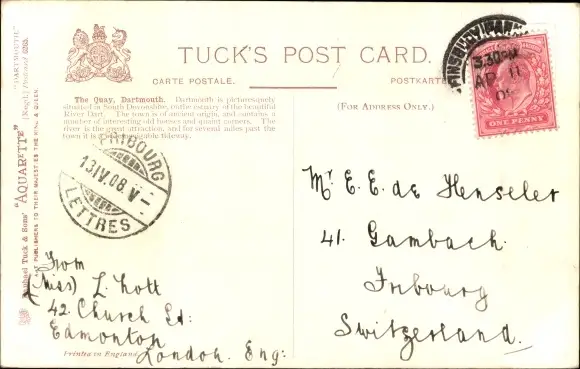 TUCK'S POST CARD.
CARTE POSTALE. POSTKARTE
(FOR ADDRESS ONLY.)
The Quay, Dartmouth. Dartmouth is picturesquely
situated in South Devonshire, on the estuary of the beautiful
River Dart. The town is of ancient origin, and contains a
number of interesting old houses and quaint corners. The
river is the great attraction, and for several miles past the
town it is navigable tideway.
"DARTMOUTH"
Raphael Tuck & Sons' "AQUARETTE"
ART PUBLISHERS TO THEIR MAJESTIES THE KING & QUEEN.
FRIBOURG
13.IV.08. V
LETTRES
3.30PM
AP 11
ONE PENNY
Mr. E. E. de Henseler
41. Gambach.
Fribourg
Switzerland.
From
(Miss) L. Nott
42. Church St:
Edmonton
London. Eng:
Printed in England